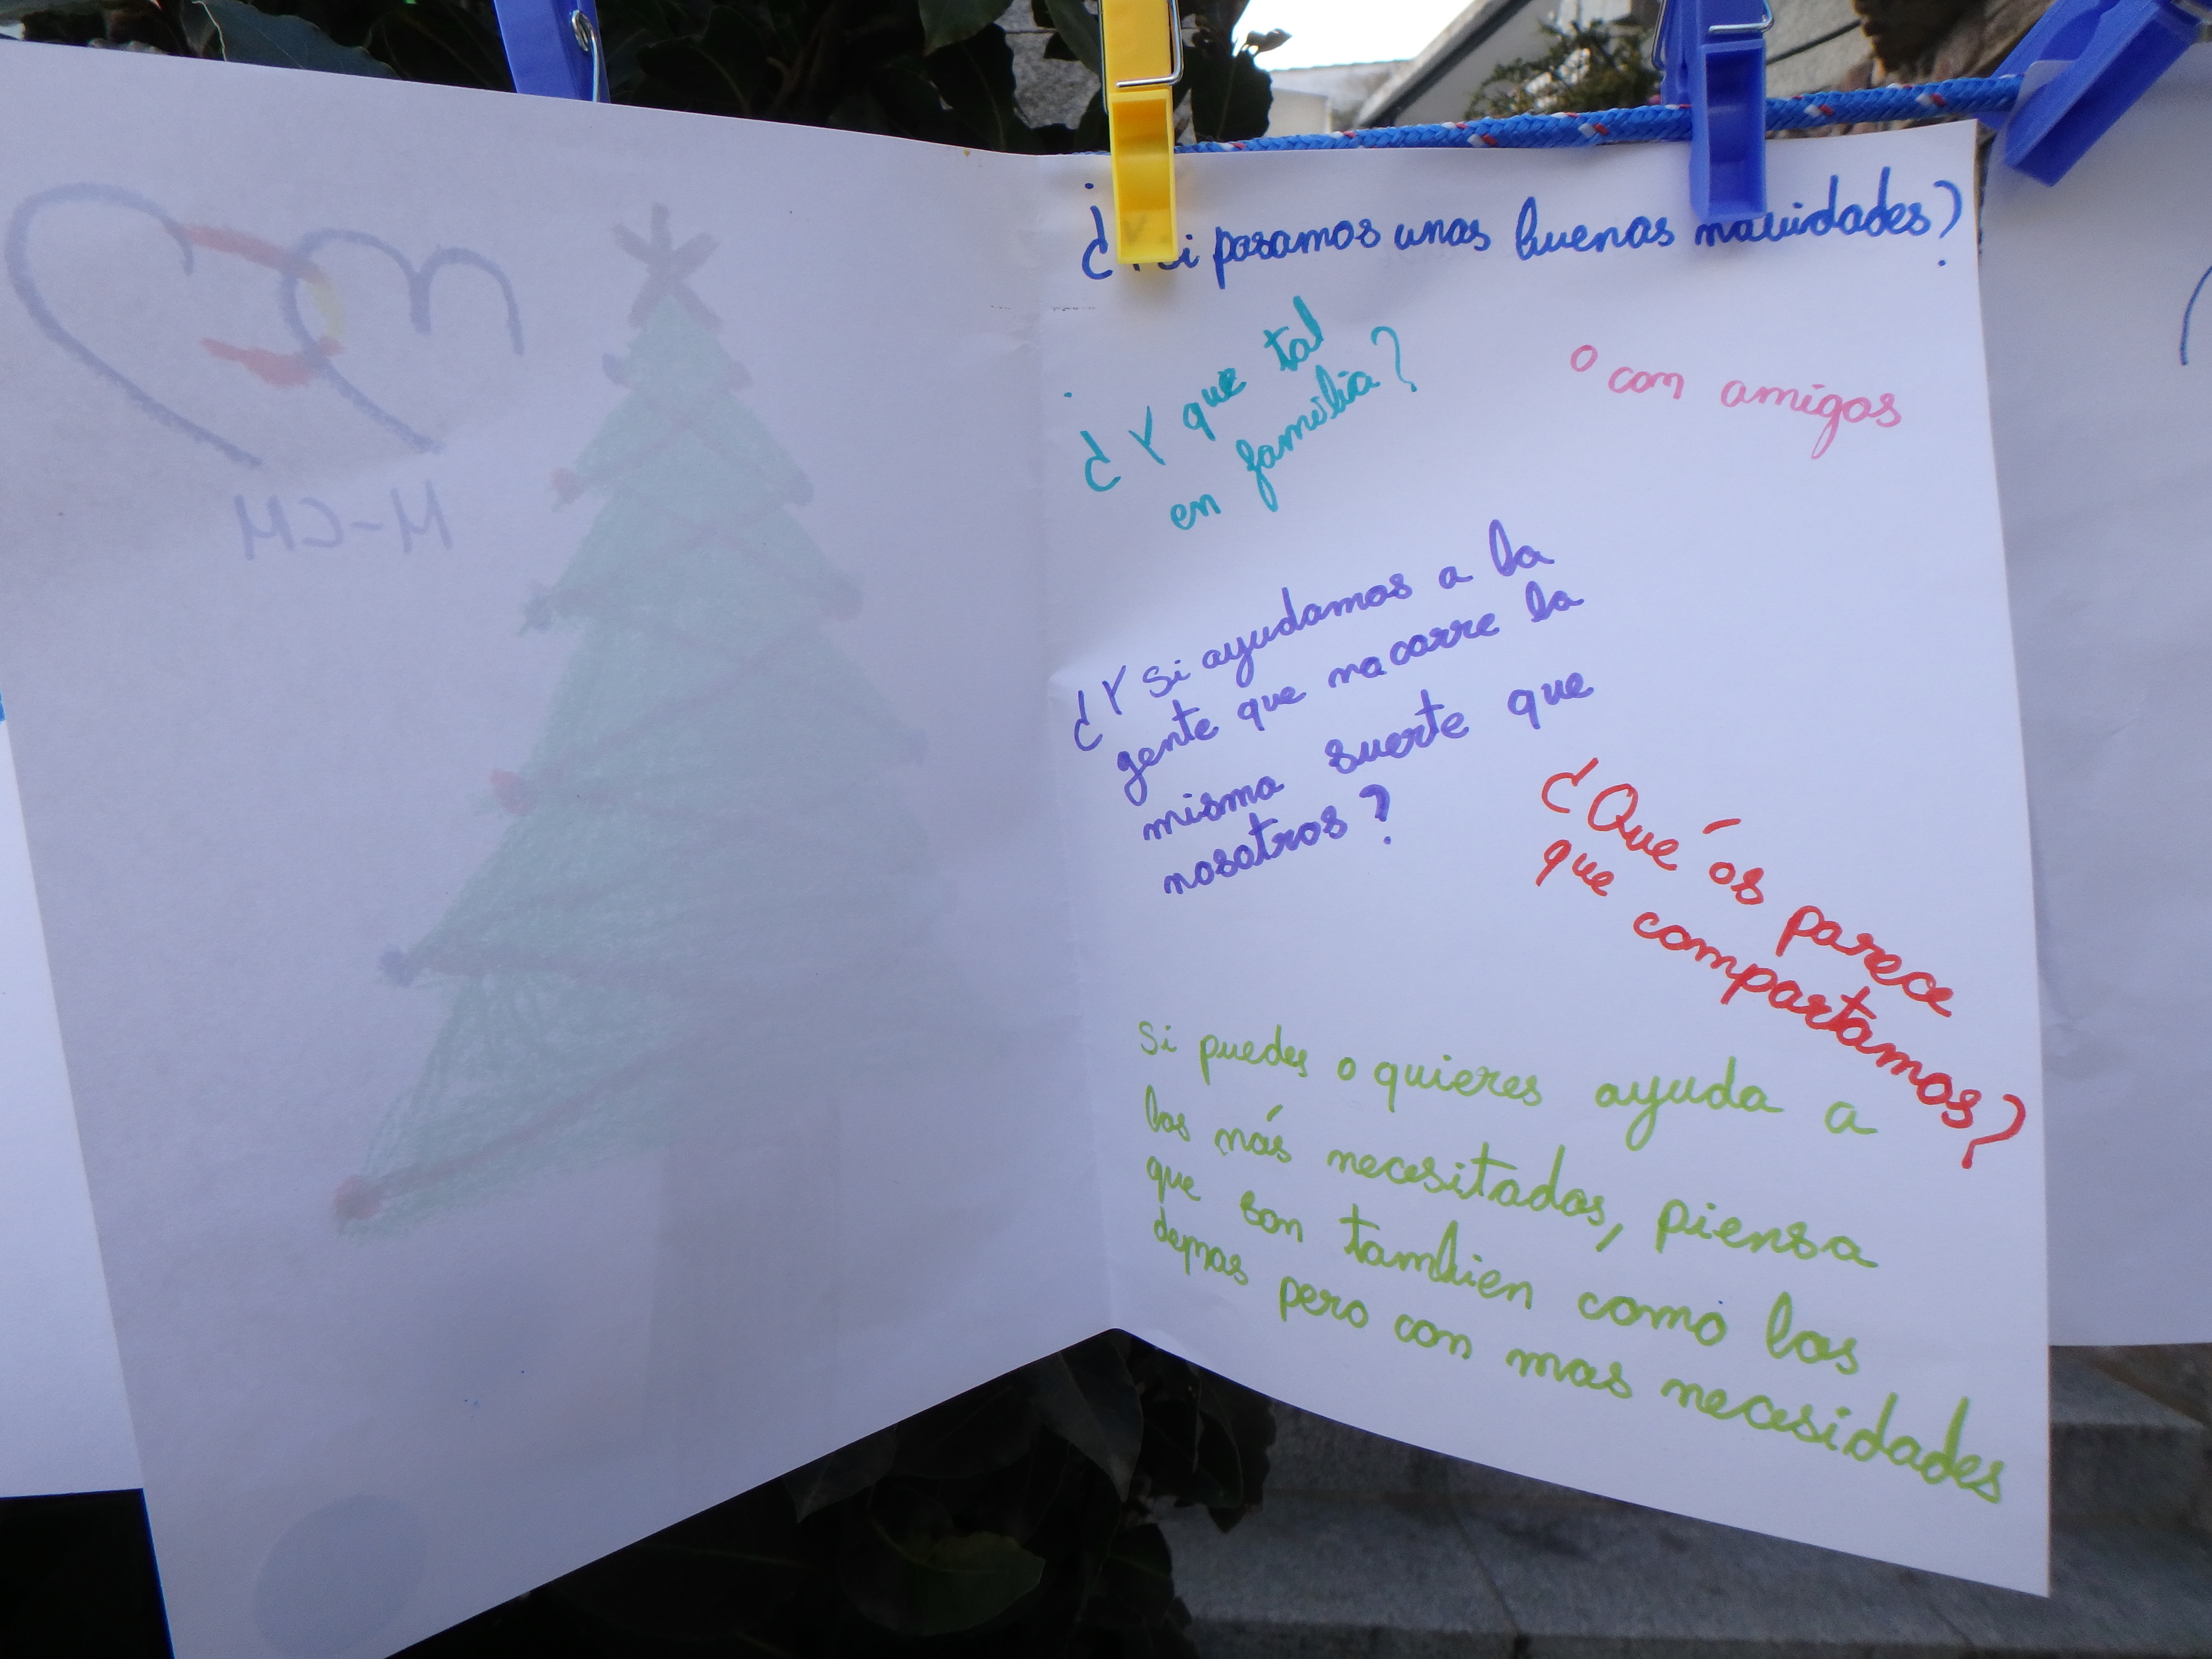 ¿Y si pasamos unas buenas navidades?
¿Y que tal
en familia?
o con amigos
¿Y si ayudamos a la
gente que no corre la
misma suerte que
nosotros?
¿Qué os parece
que compartamos?
Si puedes o quieres ayuda a
los más necesitados, piensa
que son tambien como los
demas pero con mas necesidades
M-CM